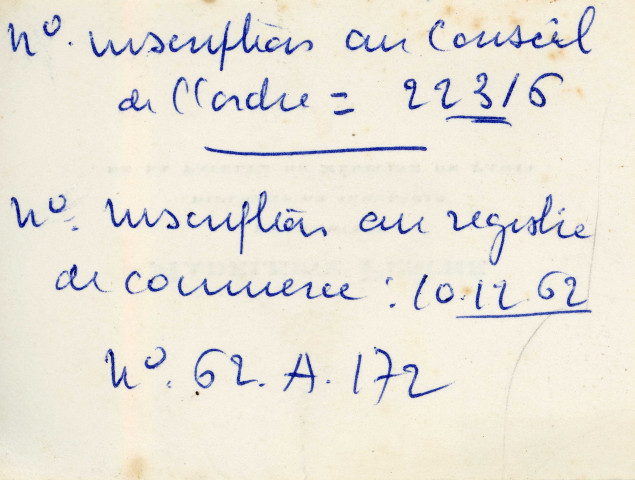 n°. inscription au Conseil
de l'ordre = 22316
n°. inscription au registre
de commerce : 10.12.62
n°. 62.A.172